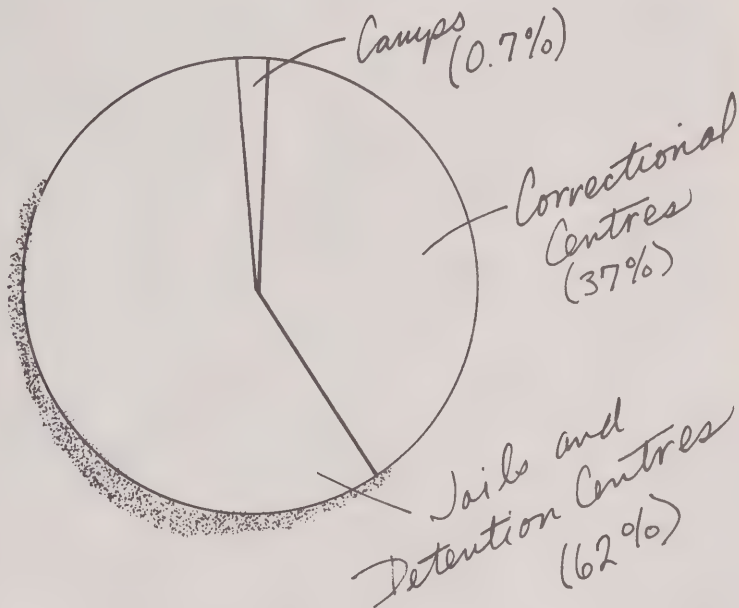 Camps
(0.7%)
Correctional
Centres
(37%)
Jails and
Detention Centres
(62%)